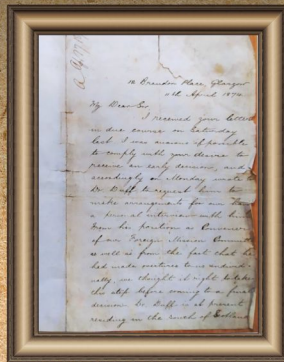 12 Brandon Place, Glasgow
11th April 1874
My Dear Sir
I received your letter
in due course on Saturday
last. I was anxious if possible
to comply with your desire to
receive an early answer, and
accordingly on Monday wrote to
Dr Duff, to request him to
make arrangements for our
a personal interview with him
from his position as Convener
of our Foreign Mission Committee
as well as from the fact that he
had made overtures to me
we thought it right to take
this step before coming to a final
decision. Dr. Duff is at present
residing in the South of England